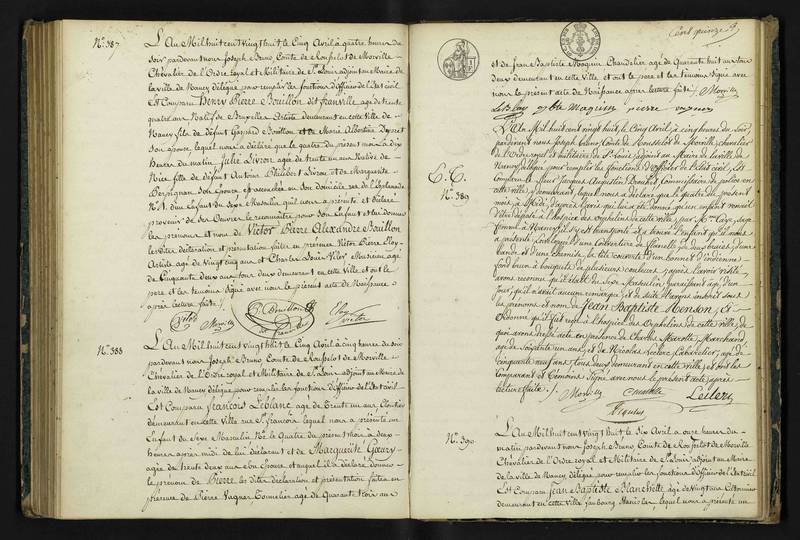 N.º 387
L'An Mil huit cent vingt huit le Cinq Avril à quatre heures du
soir pardevant nous Joseph Bruno Comte de Rousselot de Morville
Chevalier de l'Ordre royal et Militaire de St Louis adjoint au Maire de
la ville de Nancy délégué pour remplir les fonctions d'officier de l'Etat civil
Est Comparu Henry Pierre Bouillon dit franville, agé de trente
quatre ans Natif de Bruxelles Artiste demeurant en cette Ville de
Nancy fils de défunt Gaspard Bouillon et de Marie Albertine
son épouse, lequel nous a déclaré que le quatre du présent mois à dix
heures du matin Julie Livron agée de trente un ans Native de
Nice fille de défunt Antoine Livron et de Marguerite
Perpignan Son Epouse est accouchée en son domicile
N.º 1. d'un Enfant du Sexe Masculin qu'il nous a présenté et déclaré
provenir de ses Oeuvres le reconnaître pour son Enfant et lui donner
les prénoms et nom de Victor Pierre Alexandre Bouillon
les dites déclaration et présentation faites en présence Victor Pierre Eloy
Artiste agé de Vingt cinq ans et Charles Louis Musicien agé
de Cinquante deux ans tous deux demeurant en cette ville et ont le
pere et les temoins Signé avec nous le présent acte de Naissance
après lecture faite.
Morville
P. Bouillon
dit franville
Eloy
Victor
N.º 388
L'An Mil huit cent vingt huit le Cinq Avril à cinq heures du soir
pardevant nous Joseph Bruno Comte de Rousselot de Morville
Chevalier de l'Ordre royal et Militaire de St Louis adjoint au Maire de
la ville de Nancy délégué pour remplir les fonctions d'officier de l'Etat civil
Est Comparu françois Leblanc agé de Trente un ans Cloutier
demeurant en cette Ville rue St françois lequel nous a présenté un
Enfant du Sexe Masculin Né le Quatre du présent mois à deux
heures après midi de lui déclarant et de Marguerite Goury
agée de trente deux ans son Epouse et auquel il a déclaré donner
le prénom de Pierre les dites déclaration et présentation faites en
présence de Pierre Vagner Tonnelier agé de Quarante trois ans
Cent quinze
et de Jean Baptiste Mogien Chandelier agé de Quarante huit ans tous
deux demeurant en cette Ville et ont le pere et les témoins Signé avec
nous le présent acte de Naissance après lecture faite. Morville
pierre vagner
N.º 389
L'An Mil huit cent vingt huit, le Cinq Avril, à cinq heures du Soir,
pardevant nous Joseph Bruno, Comte de Rousselot de Morville, chevalier
de l'Ordre royal et militaire de St Louis, adjoint au Maire de la ville de
Nancy, délégué pour remplir les fonctions d'Officier de l'Etat civil, Est
Comparu le Sieur Jacques Augustin Commissaire de police en
cette ville, y demeurant, lequel nous a déclaré que le quatre du présent
mois à midi, d'après l'avis qui lui a été donné qu'un enfant venait
d'être déposé à l'hospice des Orphelins de cette ville, par Mme sage
femme à Nancy, il s'y est transporté et a trouvé l'enfant qu'il nous
a présenté, enveloppé d'une couverture de flanelle
bande et d'une chemise, la tête couverte d'un bonnet d'indienne
fond brun à bouquets de plusieurs couleurs; après l'avoir visité,
avons reconnu qu'il était du sexe masculin, paraissant agé d'un
jour, qu'il n'avait aucune remarque; et de suite l'avons inscrit sous
les prénoms et nom de Jean Baptiste Henson, Et
ordonné qu'il fut remis à l'hospice des Orphelins de cette ville; de
quoi avons dressé acte en présence de Charles Marchand,
agé de soixante un ans, et de Nicolas Leclerc Cabaretier, agé de
cinquante neuf ans, tous deux demeurant en cette ville; et ont les
Comparant et témoins signé avec nous le présent acte après
lecture faite.
Morville
Leclerc
N.º 390
L'An Mil huit cent vingt huit le Six Avril à onze heures du
matin pardevant nous Joseph Bruno Comte de Rousselot de Morville
Chevalier de l'Ordre royal et Militaire de St Louis adjoint au Maire
de la ville de Nancy délégué pour remplir les fonctions d'officier de l'Etat civil
Est Comparu Jean Baptiste Blanchette agé de Vingt
demeurant en cette ville faubourg Stanislas, lequel nous a présenté un